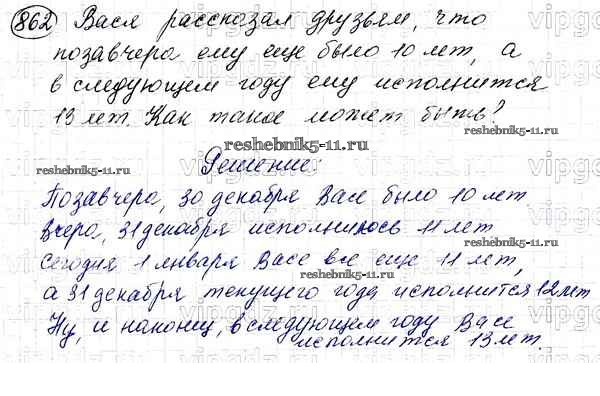 862 Вася рассказал друзьям, что
позавчера ему еще было 10 лет, а
в следующем году ему исполнится
13 лет. Как такое может быть?
reshebnik5-11.ru
reshebnik5-11.ru
Решение:
Позавчера, 30 декабря Васе было 10 лет
Вчера, 31 декабря исполнилось 11 лет
reshebnik5-11.ru
Сегодня 1 января Васе все еще 11 лет,
reshebnik5-11.ru
а 31 декабря текущего года исполнится 12 лет
Ну, и наконец, в следующем году Васе
исполнится 13 лет.